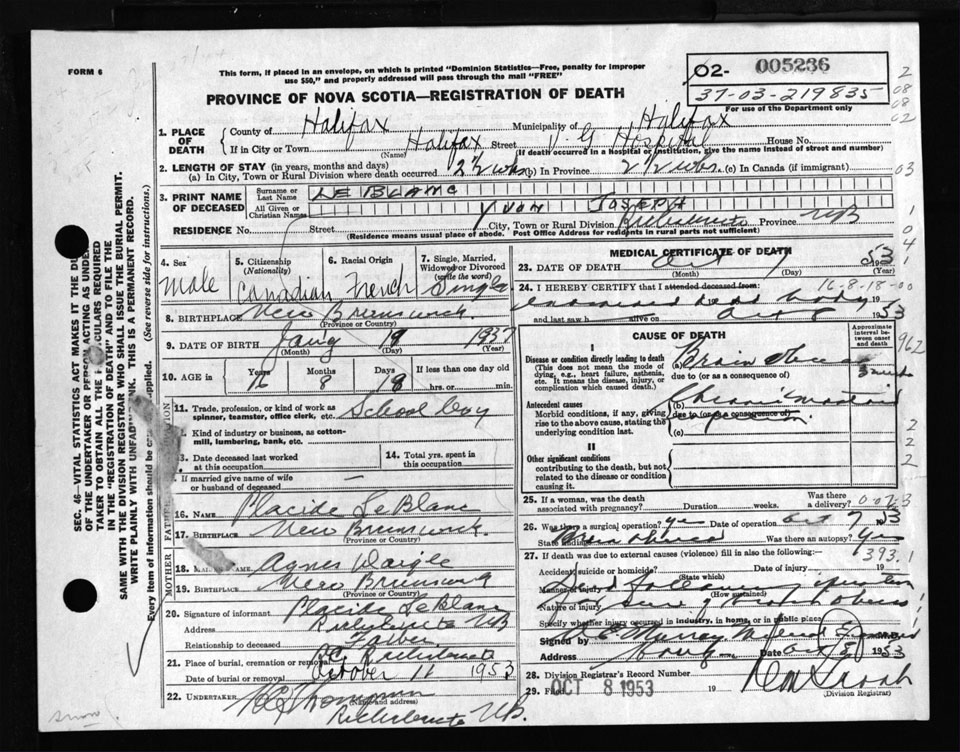 FORM 6
This form, if placed in an envelope, on which is printed "Dominion Statistics—Free, penalty for improper
use $50," and properly addressed will pass through the mail "FREE"
PROVINCE OF NOVA SCOTIA—REGISTRATION OF DEATH
02- 005236
37-03-219835
For use of the Department only
2 08 08 02
03
1. PLACE OF DEATH
County of Halifax Municipality of Halifax
If in City or Town Halifax Street V. G Hospital House No.
(Name) (If death occurred in a hospital or institution, give the name instead of street and number)
2. LENGTH OF STAY (in years, months and days)
(a) In City, Town or Rural Division where death occurred 2½ wks (b) In Province 2½ wks. (c) In Canada (if immigrant)
3. PRINT NAME OF DECEASED
Surname or Last Name LE BLANC
All Given or Christian Names YVON JOSEPH
RESIDENCE No. Street City, Town or Rural Division Richibucto Province NB
(Residence means usual place of abode. Post Office Address for residents in rural parts not sufficient)
4. Sex
Male
5. Citizenship (Nationality)
Canadian
6. Racial Origin
French
7. Single, Married, Widowed or Divorced (write the word)
Single
8. BIRTHPLACE New Brunswick
(Province or Country)
9. DATE OF BIRTH Jany 19 1937
(Month) (Day) (Year)
10. AGE in Years Months Days If less than one day old
16 8 18 hrs. or min.
11. Trade, profession, or kind of work as spinner, teamster, office clerk, etc. School boy
Kind of industry or business, as cotton-mill, lumbering, bank, etc.
3. Date deceased last worked at this occupation
14. Total yrs. spent in this occupation
If married give name of wife or husband of deceased —
16. Name Placide LeBlanc
17. BIRTHPLACE New Brunswick
(Province or Country)
FATHER
MOTHER
18. NAME Agnes Daigle
19. BIRTHPLACE New Brunswick
(Province or Country)
20. Signature of informant Placide LeBlanc
Address Richibucto NB
Relationship to deceased Father
21. Place of burial, cremation or removal R.C. Richibucto
Date of burial or removal October 11 1953
22. UNDERTAKER Thompson
(Name and address)
Richibucto NB.
MEDICAL CERTIFICATE OF DEATH
23. DATE OF DEATH Oct 7 1953
(Month) (Day) (Year)
16-8-18-00
24. I HEREBY CERTIFY that I attended deceased from:
examined dead body 19
and last saw h alive on Oct 8 1953
CAUSE OF DEATH
Approximate interval between onset and death
I
Disease or condition directly leading to death
(This does not mean the mode of dying, e.g., heart failure, asthenia, etc. It means the disease, injury, or complication which caused death.)
(a) Brain Abscess
due to (or as a consequence of)
Antecedent causes
Morbid conditions, if any, giving rise to the above cause, stating the underlying condition last.
(b) Chronic
due to (or as a consequence of)
(c)
II
Other significant conditions contributing to the death, but not related to the disease or condition causing it.
962
2 2 2
25. If a woman, was the death associated with pregnancy? Duration weeks. Was there a delivery?
26. Was there a surgical operation? yes Date of operation Oct 7 1953
State findings Brain Abscess Was there an autopsy? Yes
27. If death was due to external causes (violence) fill in also the following:—
393.1
Accident, suicide or homicide? Date of injury 19
(State which)
Manner of injury
(How sustained)
Nature of injury
Specify whether injury occurred in industry, in home, or in public place
Signed by E Murray M.D.
Address Date Oct 1953
28. Division Registrar's Record Number
29. Filed OCT 8 1953 19
(Division Registrar)
SEC. 46—VITAL STATISTICS ACT MAKES IT THE DU
OF THE UNDERTAKER OR PERSON ACTING AS UNDER
TAKER TO OBTAIN ALL THE PARTICULARS REQUIRED
IN THE "REGISTRATION OF DEATH" AND TO FILE THE
SAME WITH THE DIVISION REGISTRAR WHO SHALL ISSUE THE BURIAL PERMIT.
WRITE PLAINLY WITH UNFADING INK. THIS IS A PERMANENT RECORD.
Every item of information should be carefully supplied. (See reverse side for instructions.)